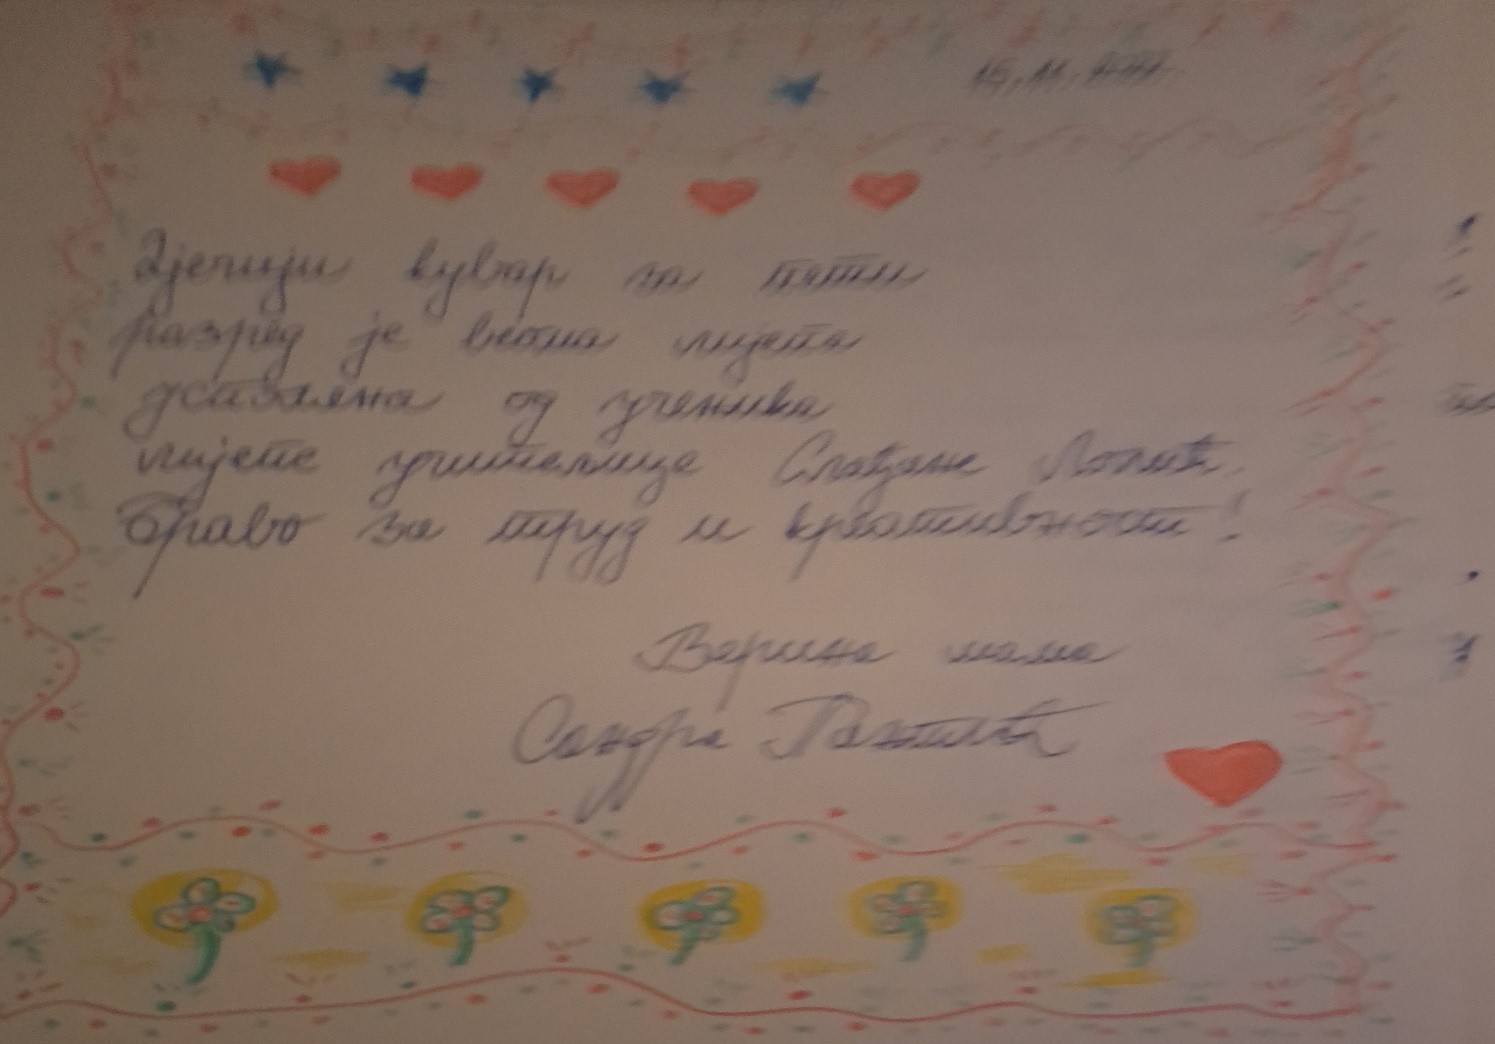 15.11.
Дјечији кувар за пети
разред је веома лијепа
од ученика
лијепе учитељице Слађане Лопић.
Браво за труд и креативност!
Верина мама
Сандра Пантић